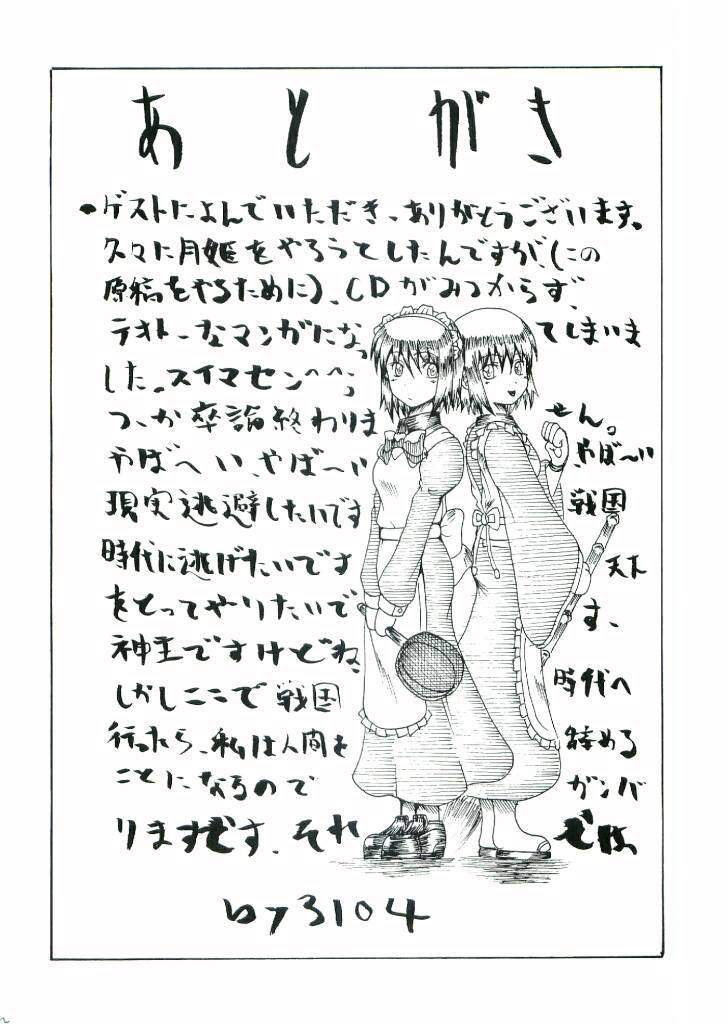 あとがき
・ゲストによんでいただき、ありがとうございます。
久々に月姫をやろうてしたんですが、(この
原稿をやるために)、CDがみつからず、
テキトーなマンガになってしまいま
した。スイマセン^^;
つーか卒論終わりません。
やばへい、やば〜いやば〜い
現実逃避したいです戦国
時代に逃げたいです天下
をとってやりたいです、
神主ですけどね、
しかしここで戦国時代へ
行ったら、私は人間を辞める
ことになるのでガンバ
りまずです、それでは、
by3104